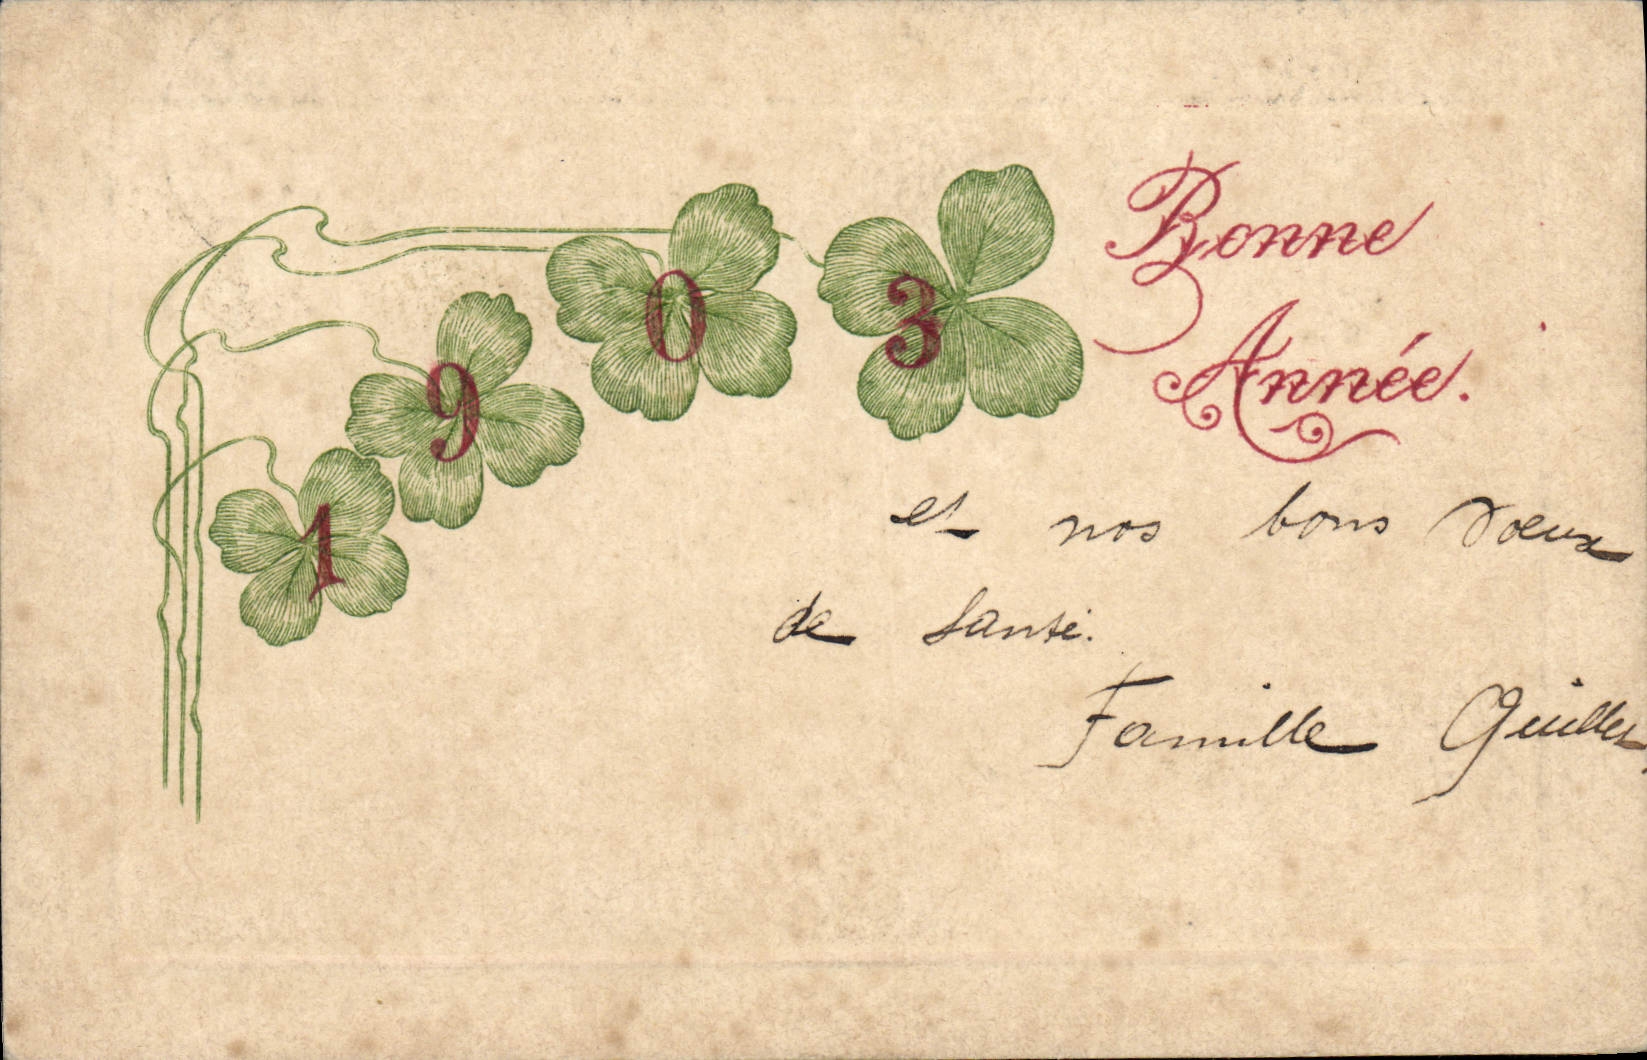 1903
Bonne
Année.
et nos bons voeux
de santé.
Famille